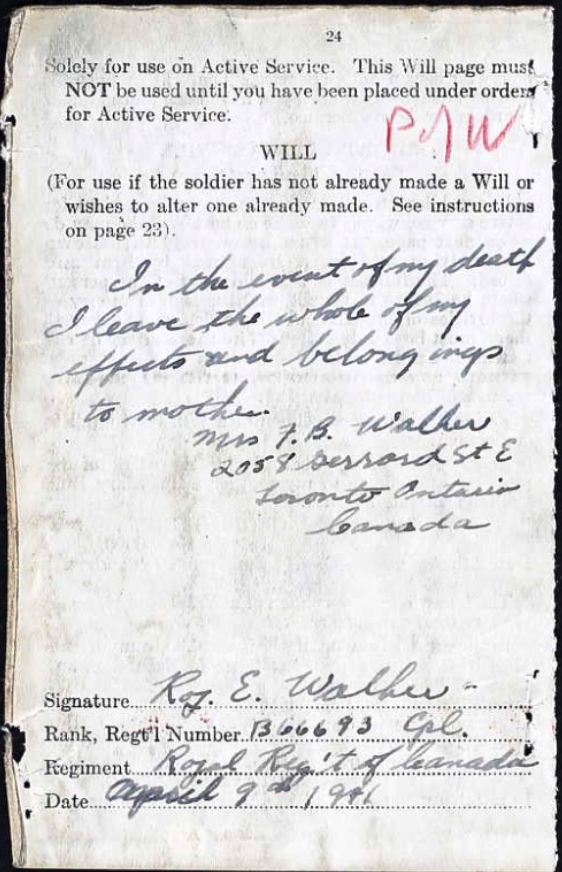 24
Solely for use on Active Service. This Will page must
NOT be used until you have been placed under orders
for Active Service.
P/W
WILL
(For use if the soldier has not already made a Will or
wishes to alter one already made. See instructions
on page 23).
In the event of my death
I leave the whole of my
effects and belongings
to mother.
Mrs F. B. Walker
2058 Gerrard St E
Toronto Ontario
Canada
Signature Roy. E. Walker
Rank, Regt'l Number B66693 Cpl.
Regiment Royal Reg't of Canada
Date April 9th, 1941